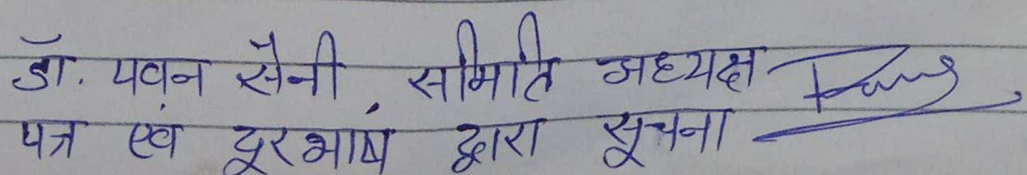 डॉ. पवन सैनी, समिति अध्यक्ष
पत्र एवं दूरभाष द्वारा सूचना